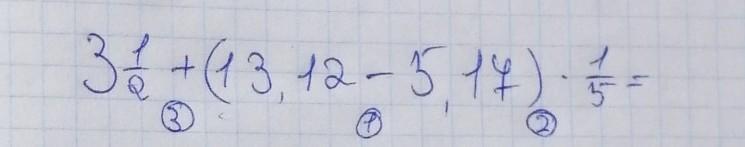 3 1/2 + (13,12 - 5,17) · 1/5 =
③ ① ②